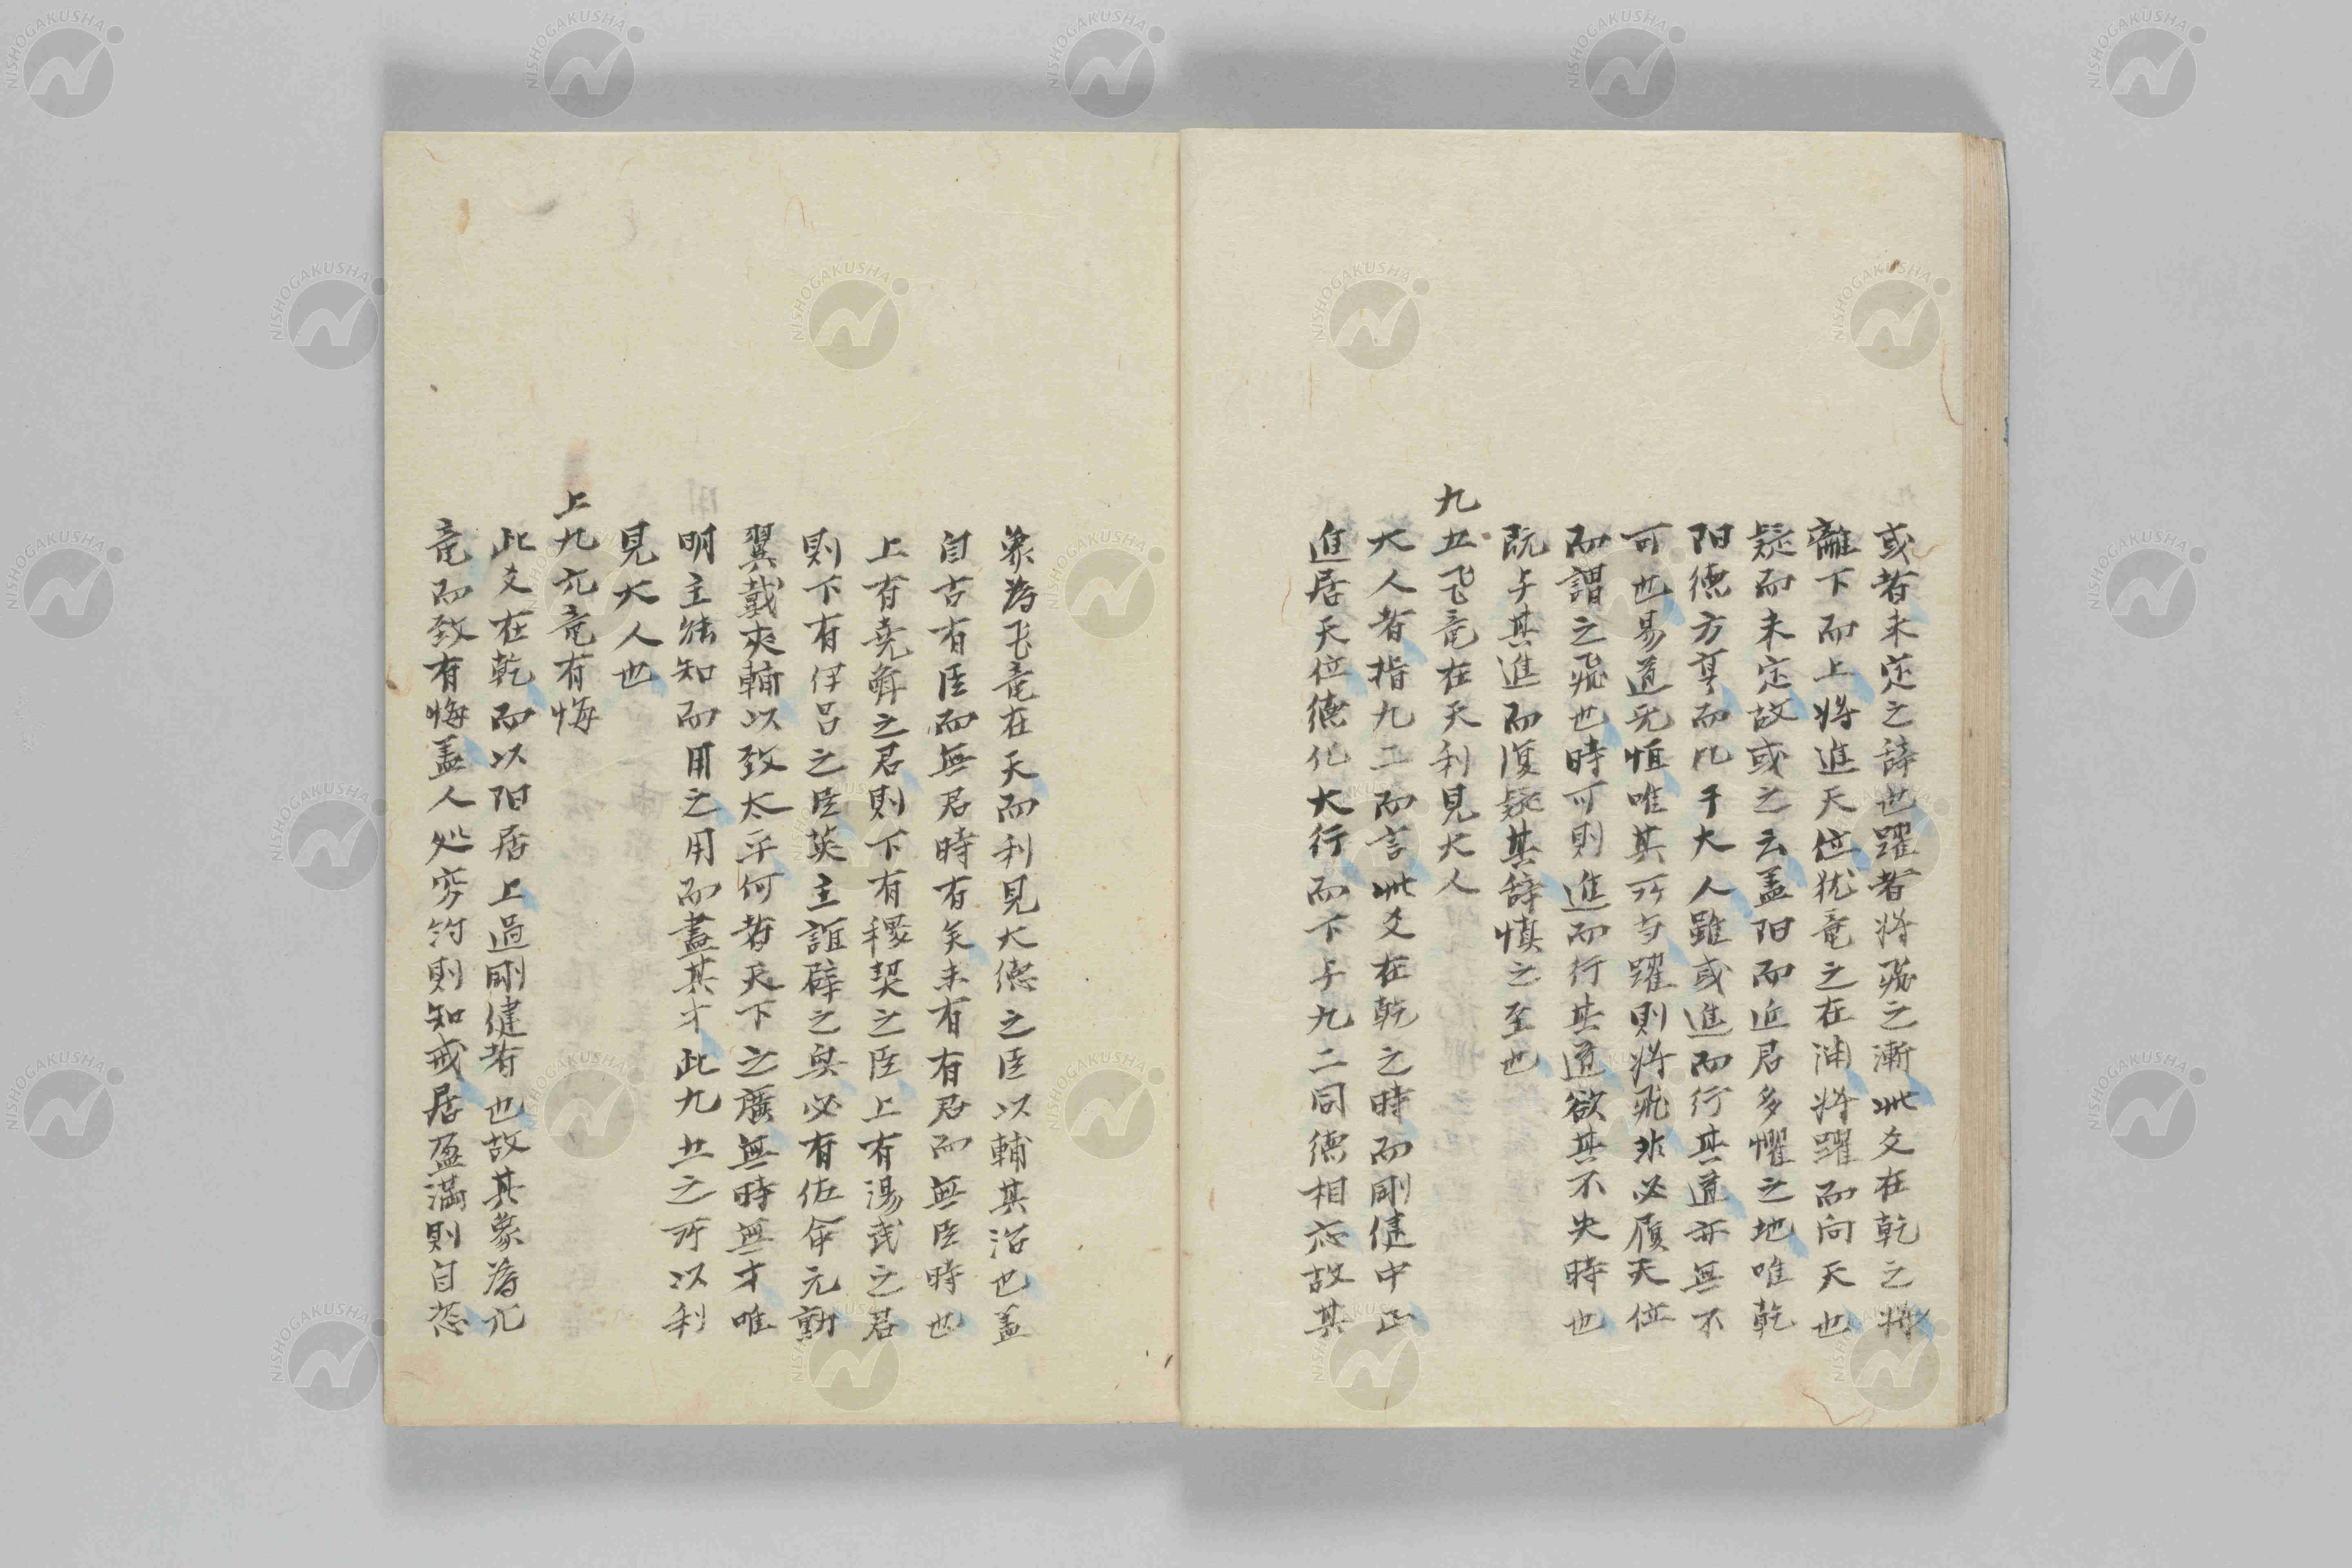 或者未定之辞也躍者将飛之漸此爻在乾之将
離下而上将進天位犹竜之在渕将躍而向天也
疑而未定故或之云盖阳而近君多懼之地唯乾
阳徳方享而比于大人雖或進而行其道亦無不
可也易道无恒唯其所与躍則将飛非必履天位
而謂之飛也時可則進而行其道欲其不失時也
既与其進而復疑其辞慎之至也
九五飞竜在天利見大人
大人者指九二而言此爻在乾之時而剛健中正
進居天位徳化大行而下与九二同徳相応故其
象為飞竜在天而利見大徳之臣以輔其治也盖
自古有臣而無君時有矣未有有君而無臣時也
上有堯舜之君則下有稷契之臣上有湯武之君
則下有伊呂之臣英主誼辟之興必有佐命元勳
翼戴夾輔以致太平何者天下之廣無時無才唯
明主能知而用之用而盡其才此九五之所以利
見大人也
上九亢竜有悔
此爻在乾而以阳居上過剛健者也故其象為亢
竜而致有悔盖人処窮約則知戒居盈満則自恣
NISHOGAKUSHA